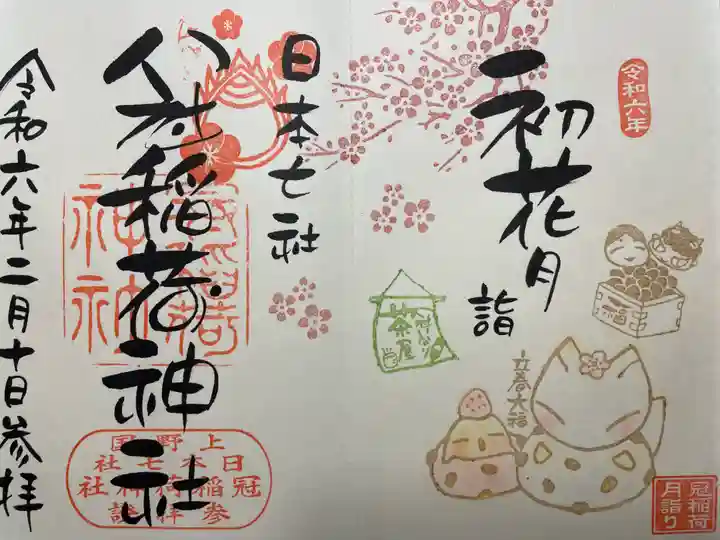 令和六年
初花月
詣
立春大福
福
茶屋
冠稲荷
月詣り
日本七社
冠稲荷神社
上野国
日本七社
冠稲荷神社
参拝證
令和六年二月十日参拝